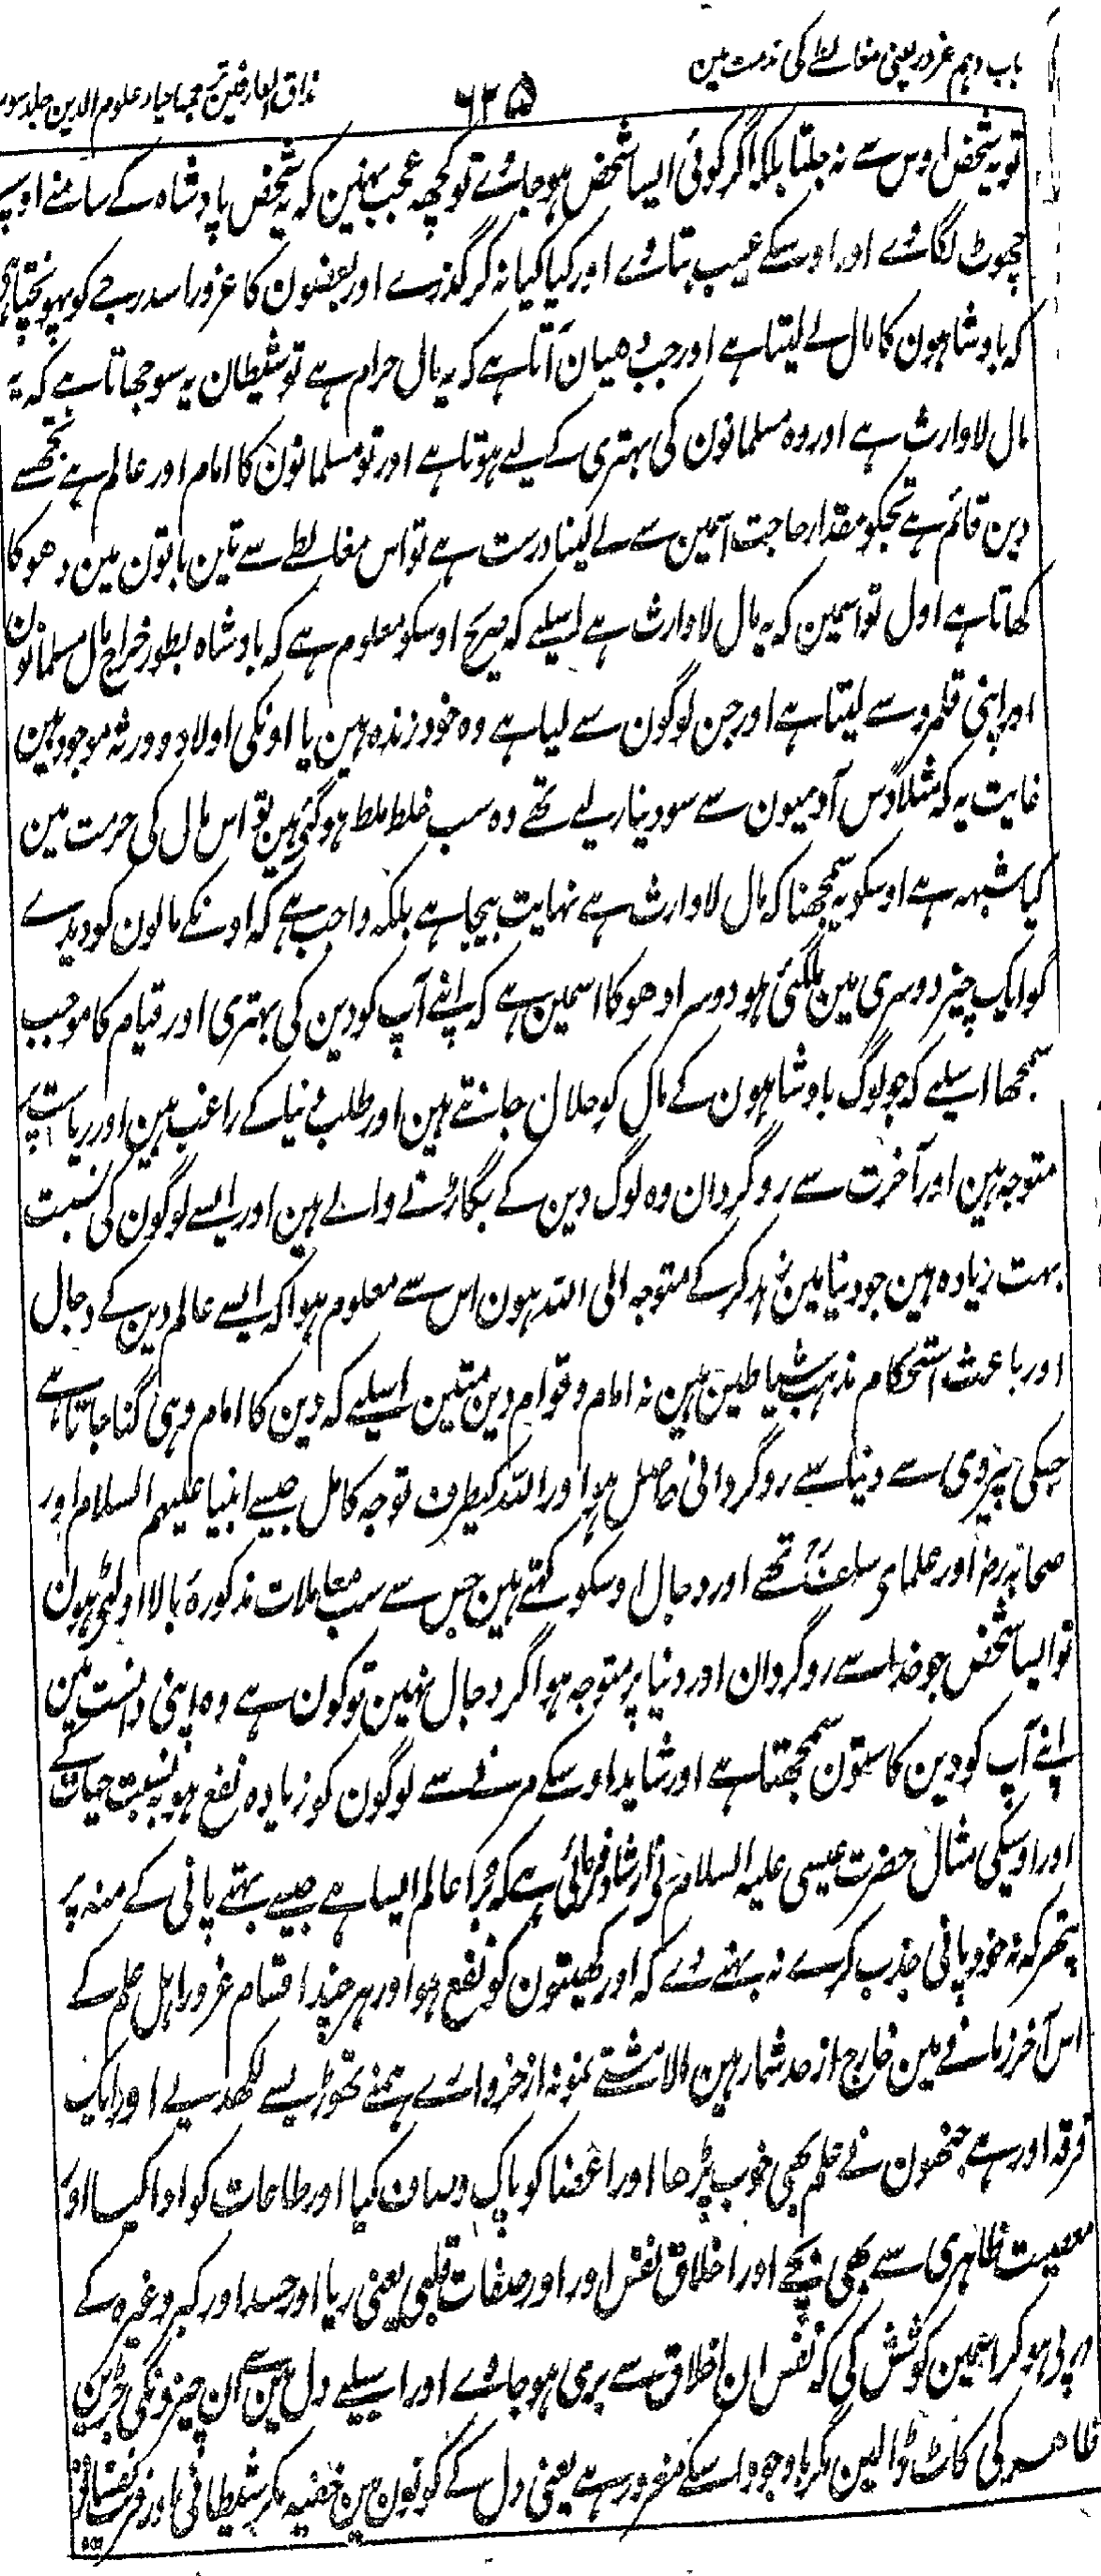 باب دہم غرور یعنی مغالطے کی مذمت مین
۶۳۵
مذاق العارفین ترجمہ احیاء علوم الدین جلد سوم
تو یہ شخص اوس سے نہ جلتا بلکہ اگر کوئی ایسا شخص ہو جاوے تو کچھ عجب نہین کہ یہ شخص پادشاہ کے سامنے اوسپر
جھوٹ لگاوے اور اوسکے عیب بتاوے اور کیا کیا نہ کر گذرے اور بعضون کا غرور اسدرجے کو پہونچتا ہی
کہ بادشاہون کا مال لے لیتا ہے اور جب دھیان آتا ہے کہ یہ مال حرام ہے تو شیطان یہ سوجھاتا ہے کہ یہ
مال لاوارث ہے اور وہ مسلمانون کی بہتری کے لیے ہوتا ہے اور تو مسلمانون کا امام اور عالم ہے تجھسے
دین قائم ہے تجکو مقدار حاجت اسمین سے لے لینا درست ہے تو اس مغالطے سے تین باتون مین دھوکا
کھاتا ہے اول تو اسمین کہ یہ مال لاوارث ہے اسلیے کہ صریح اوسکو معلوم ہے کہ بادشاہ بطور خراج مال مسلمانون
اور اپنی قلمرو سے لیتا ہے اور جن لوگون سے لیا ہے وہ خود زندہ ہین یا اونکی اولاد و ورثہ موجود ہین
غایت یہ کہ مثلا دس آدمیون سے سو دینار لیے تھے وہ سب خلط ملط ہو گئے ہین تو اس مال کی حرمت مین
کیا شبہہ ہے اوسکو یہ سمجھنا کہ مال لاوارث ہے نہایت بیجا ہے بلکہ واجب ہے کہ اونکے مالکون کو دیدے
گو ایک چیز دوسری مین ملگئی ہو دوسرا دھوکا اسمین ہے کہ اپنے آپ کو دین کی بہتری اور قیام کا موجب
سمجھا اسلیے کہ جو لوگ بادشاہون کے مال کو حلال جانتے ہین اور طلب دنیا کے راغب ہین اور ریاست پر
متوجہ ہین اور آخرت سے روگردان وہ لوگ دین کے بگاڑنے والے ہین اور ایسے لوگون کی نسبت
بہت زیادہ ہین جو دنیا مین زہد کر کے متوجہ الی اللہ ہون اس سے معلوم ہوا کہ ایسے عالم دین کے دجال
اور باعث استحکام مذہب شیاطین ہین نہ امام و قوام دین متین اسلیے کہ دین کا امام وہی گنا جاتا ہے
جسکی پیروی سے دنیا سے روگردانی حاصل ہو اور اللہ کیطرف توجہ کامل جیسے انبیا علیہم السلام اور
صحابہ رض اور علمای سلف تھے اور دجال اوسکو کہتے ہین جس سے سب معاملات مذکورہ بالا اولٹے ہون
تو ایسا شخص جو خدا سے روگردان اور دنیا پر متوجہ ہو اگر دجال نہین تو کون ہے وہ اپنی دانست مین
اپنے آپ کو دین کا ستون سمجھتا ہے اور شاید اوسکے مرنے سے لوگون کو زیادہ نفع ہو بہ نسبت حیات کے
اور اوسیکی مثال حضرت عیسی علیہ السلام نے ارشاد فرمائی ہے کہ برا عالم ایسا ہے جیسے بہتے پانی کے منہ پر
پتھر کہ نہ خود پانی جذب کرے نہ بہنے دے کہ اور کھیتون کو نفع ہو اور ہر چند اقسام غرور اہل علم کے
اس آخر زمانے مین خارج از حد شمار ہین الا مشتے نمونہ از خروارے ہمنے تھوڑیسے لکھدیے اور ایک
فرقہ اور ہے جنھون نے علم بھی خوب پڑھا اور اعضا کو پاک و صاف کیا اور طاعات کو ادا کیا اور
معصیت ظاہری سے بھی بچے اور اخلاق نفس اور اور صفات قلبی یعنی ریا اور حسد اور کبر وغیرہ کے
درپی ہو کر اسمین کوشش کی کہ نفس ان اخلاق سے بری ہو جاوے اور اسیلیے دل مین سے ان چیزونکی جڑین
ظاہر کی کاٹ ڈالین مگر باوجود اسکے مغرور ہے یعنی دل کے گوشون مین خفیہ مکر شیطانی اور فریب نفسانی